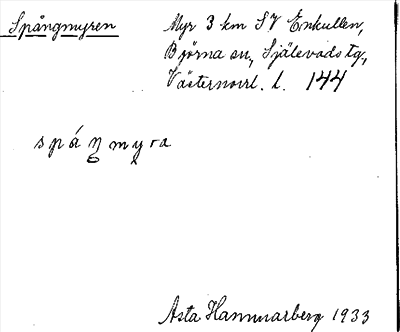 Spångmyren
Myr 3 km SV Enkullen,
Björna sn, Själevads tg,
Västernorrl. l. 144
spáŋmyra
Asta Hammarberg 1933